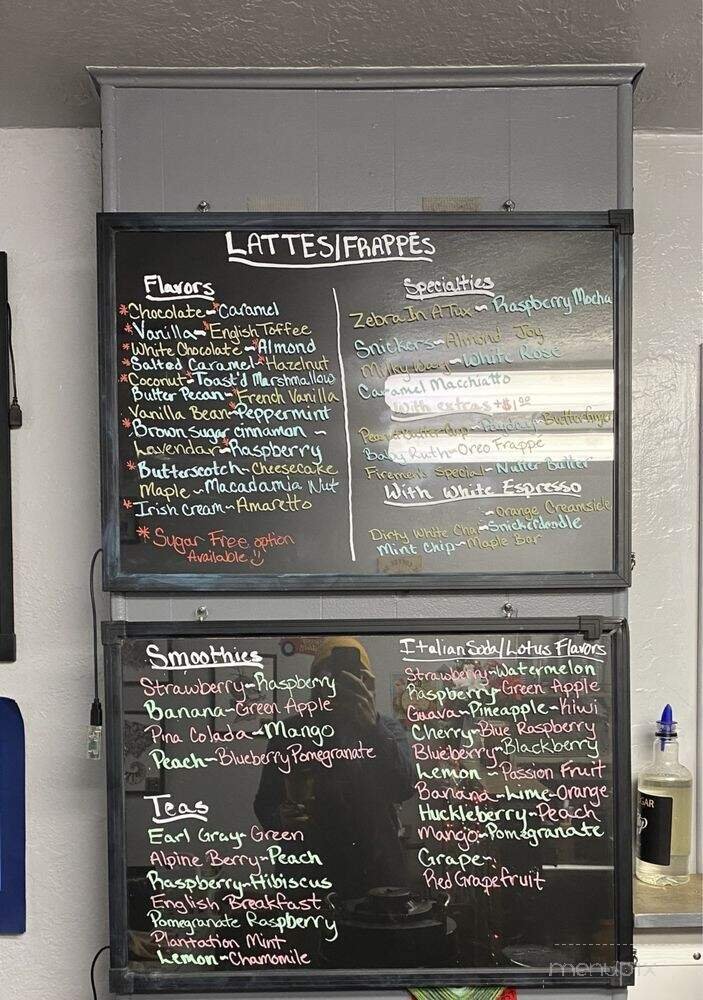 LATTES/FRAPPĒS
Flavors
*Chocolate~*Caramel
*Vanilla~*English Toffee
*White Chocolate~*Almond
*Salted Caramel~*Hazelnut
*Coconut~Toast'd Marshmallow
Butter Pecan~*French Vanilla
Vanilla Bean~*Peppermint
*Brown sugar cinnamon ~
Lavendar~*Raspberry
*Butterscotch~Cheesecake
Maple~Macadamia Nut
*Irish Cream~Amaretto
*Sugar Free option
Available
Specialties
Zebra In A Tux~Raspberry Mocha
Snickers~Almond Joy
Milky Way~White Rose
Caramel Macchiatto
With extras +$1.00
Peanutbutter Cup~Payday~Butterfinger
Baby Ruth~Oreo Frappe
Firemens Special~Nutter Butter
With White Espresso
~Orange Creamsicle
Dirty White Chai~Snickerdoodle
Mint Chip~Maple Bar
Smoothies
Strawberry~Raspberry
Banana~Green Apple
Pina Colada~Mango
Peach~Blueberry Pomegranate
Teas
Earl Gray~Green
Alpine Berry~Peach
Raspberry~Hibiscus
English Breakfast
Pomegranate Raspberry
Plantation Mint
Lemon~Chamomile
Italian Soda/Lotus Flavors
Strawberry~Watermelon
Raspberry~Green Apple
Guava~Pineapple~Kiwi
Cherry~Blue Raspberry
Blueberry~Blackberry
Lemon~Passion Fruit
Banana~Lime~Orange
Huckleberry~Peach
Mango~Pomegranate
Grape~
Red Grapefruit
menupix